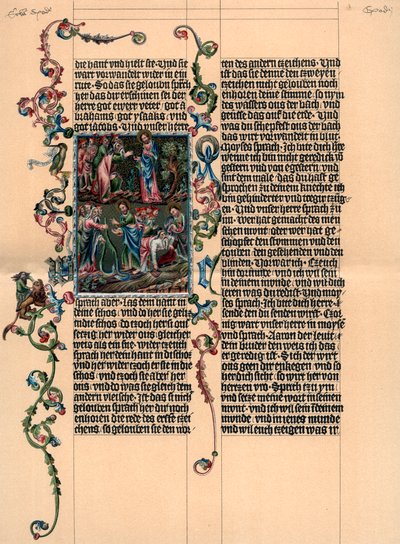 die hant vnd hielt sie · Vnd sie
wart vorwandelt wider in ein
rute · So das sie gelouben sprach
her das dir erschinen sei der
herre got ewer veter · got a
brahams · got ysaaks · vnd
got iacobs · Vnd vnser herre
sprach aber · Las dein hant in
deine schos · vnd do her sie geleit
in die schos · do czoch her sie ous
seczig · her wider ous · gleicher
weis als ein sne · wider czeuch
sprach her dein hant in di schos
vnd her wider czoch er sie in die
schos · vnd czoch sie aber her
ous · vnd do was sie gleich dem
andern vleische · Ist das si nicht
gelouben sprach her dir noch
enhoren die rede des ersten czei
chens · so gelouben sie den wor
ten des andern czeichens · Vnd
ist das sie denne den czweyen
czeichen nicht gelouben noch
enhoren deine stimme · so nym
des wassers ous der bach · vnd
geusse das ouf die erde · Vnd
was du schepfest ous der bach
das wirt vorwandelt in blut ·
Moyses sprach · Ich bite dich herre
wenne ich bin nicht geredick so
gestern vnd von egestern · vnd
sint dem male · das du hast ge
sprochen czu deinem knechte ich
bin gehinderter vnd tregir czung
en · Vnd vnser herre sprach czu
im · Wer hat gemacht des men
schen munt · oder wer hat ge
schopfet den stummen vnd den
touben · den gesehenden vnd den
blinden · Nor war ich · Czeuch
hin dorumme · vnd ich wil sein
in deinem munde · vnd wil dich
leren was du redist · Vnd moy
ses sprach · Ich bite dich herre ·
sende den du senden wirst · Czor
nig wart vnser herre in moyse
vnd sprach · Aaron der leuite
dein bruder den weis ich das
er geredig ist · Sich der wirt
ous geen dir enkegen · vnd so
her dich sicht · so wirt her von
herczen vro · Sprich czu ym ·
vnd secze meine wort in seinen
munt · vnd ich wil sein in deinem
munde · vnd in ienes munde
vnd wil euch czeigen was ir